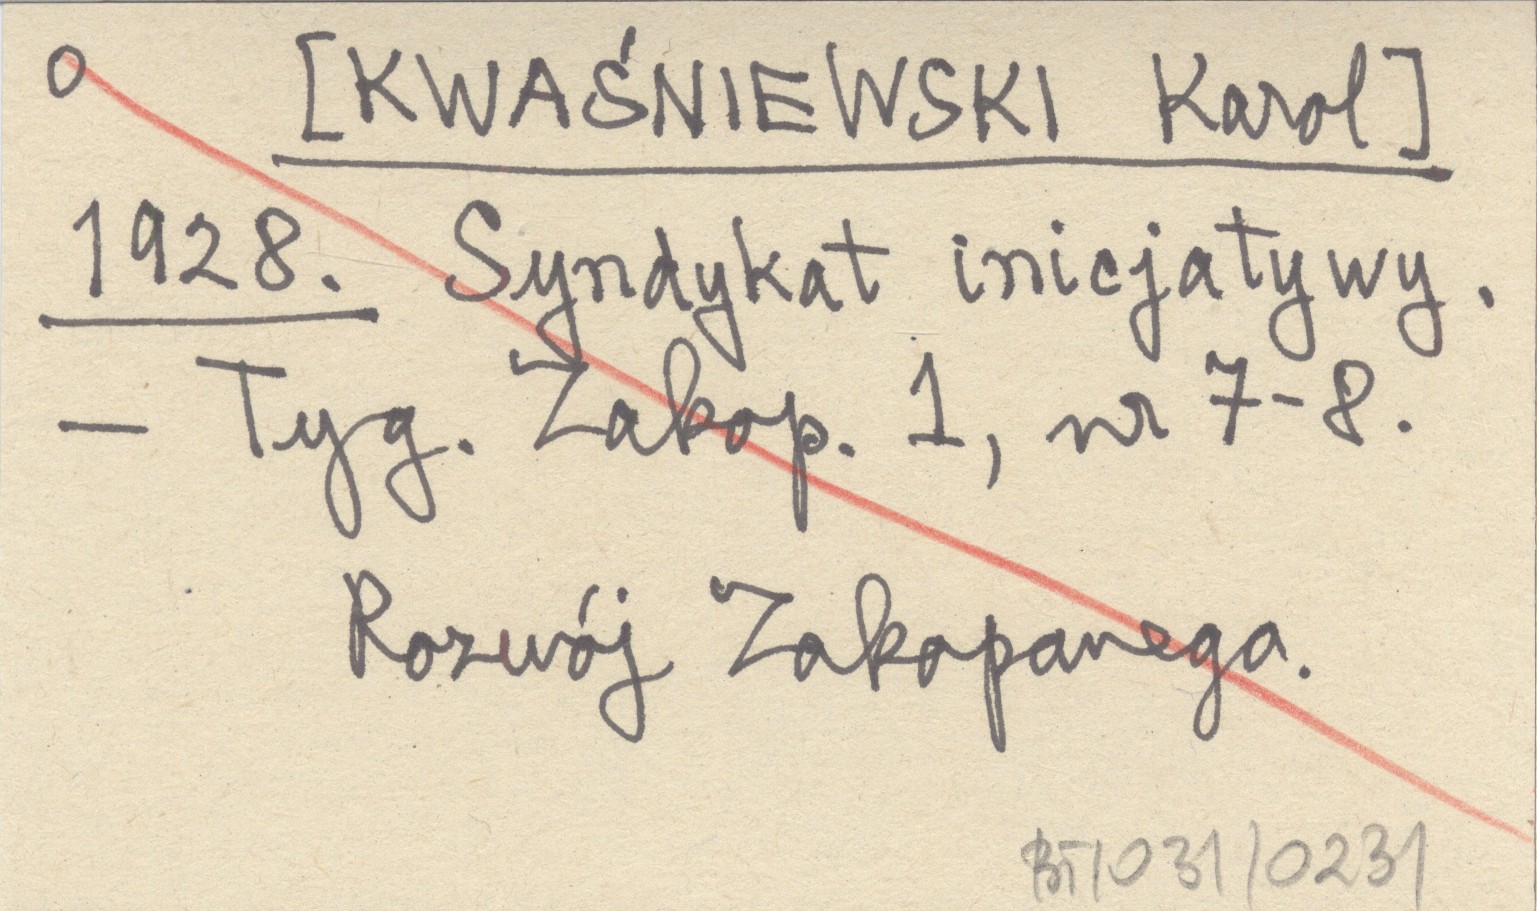 o [KWAŚNIEWSKI Karol]
1928. Syndykat inicjatywy.
- Tyg. Zakop. 1, nr 7-8.
Rozwój Zakopanego.
BT/031/0231